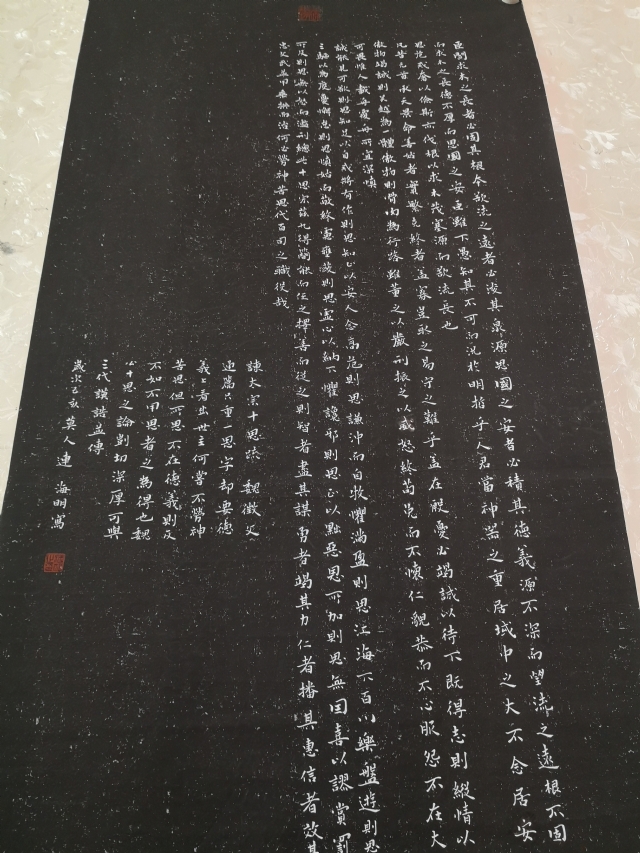 臣聞求木之長者必固其根本欲流之遠者必浚其泉源思國之安者必積其德義源不深而望流之遠根不固
而求木之長德不厚而思國之安臣雖下愚知其不可而況於明哲乎人君當神器之重居域中之大不念居安
思危戒奢以儉斯亦伐根以求木茂塞源而欲流長也
凡昔元首承天景命善始者實繁克終者蓋寡豈取之易守之難乎蓋在殷憂必竭誠以待下既得志則縱情以
傲物竭誠則吴越為一體傲物則骨肉為行路雖董之以嚴刑振之以威怒終苟免而不懷仁貌恭而不心服怨不在大
可畏惟人載舟覆舟所宜深慎
誠能見可欲則思知足以自戒將有作則思知止以安人念高危則思謙沖而自牧懼滿盈則思江海下百川樂盤遊則思
三驅以為度憂懈怠則思慎始而敬終慮壅蔽則思虛心以納下懼讒邪則思正以黜惡恩所加則思無因喜以謬賞罰
所及則思無以怒而濫刑總此十思宏茲九得簡能而任之擇善而從之則智者盡其謀勇者竭其力仁者播其惠信者效其
忠文武並用垂拱而治何必勞神苦思代百司之職役哉
諫太宗十思疏 魏徵 文
通篇只重一思字却要德
義上看出世主何嘗不勞神
苦思但所思不在德義則反
不如不用思者之為得也魏
公十思之論剴切深厚可與
三代謨誥並傳
歲次己亥 莫人連海明寫